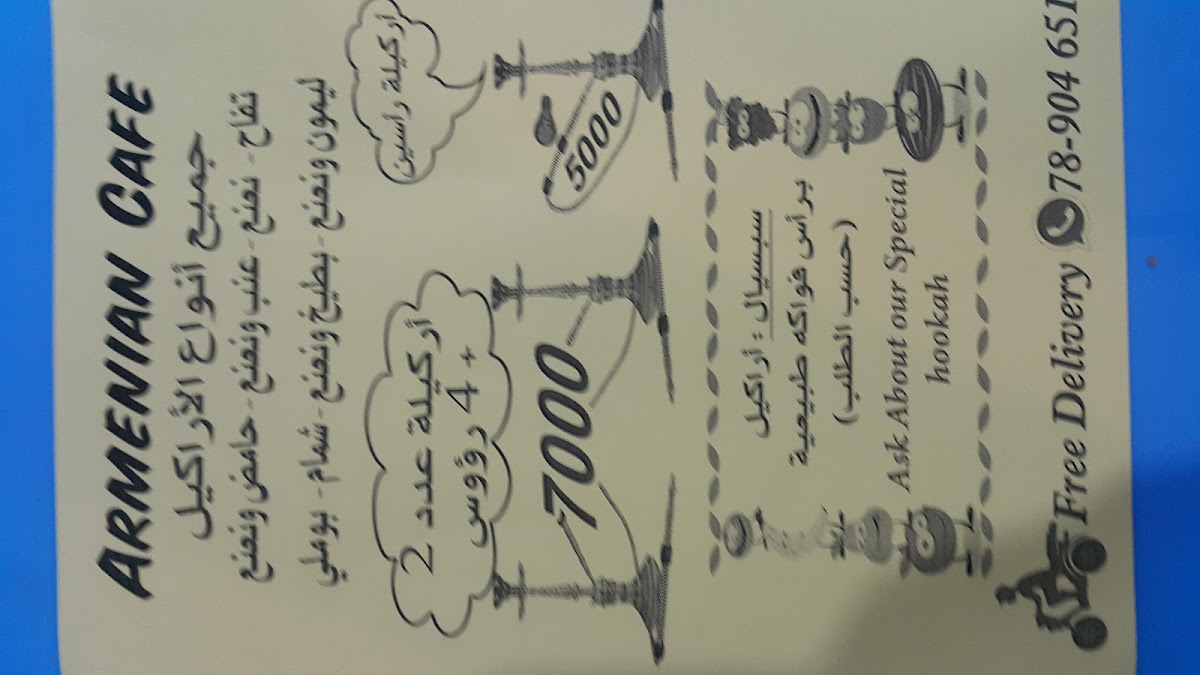 ARMENIAN CAFE
جميع أنواع الأراكيل
تفاح - نعنع - عنب ونعنع - حامض ونعنع
ليمون ونعنع - بطيخ ونعنع - شمام - بوملي
أركيلة عدد 2
+ 4 رؤوس
7000
أركيلة راسين
5000
سبسيال : أراكيل
برأس فواكه طبيعية
(حسب الطلب)
Ask About our Special
hookah
Free Delivery 78-904 651